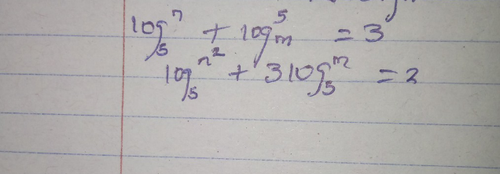 log₅ⁿ + logₘ⁵ = 3
log₅ⁿ² + 3log₅ᵐ = 2